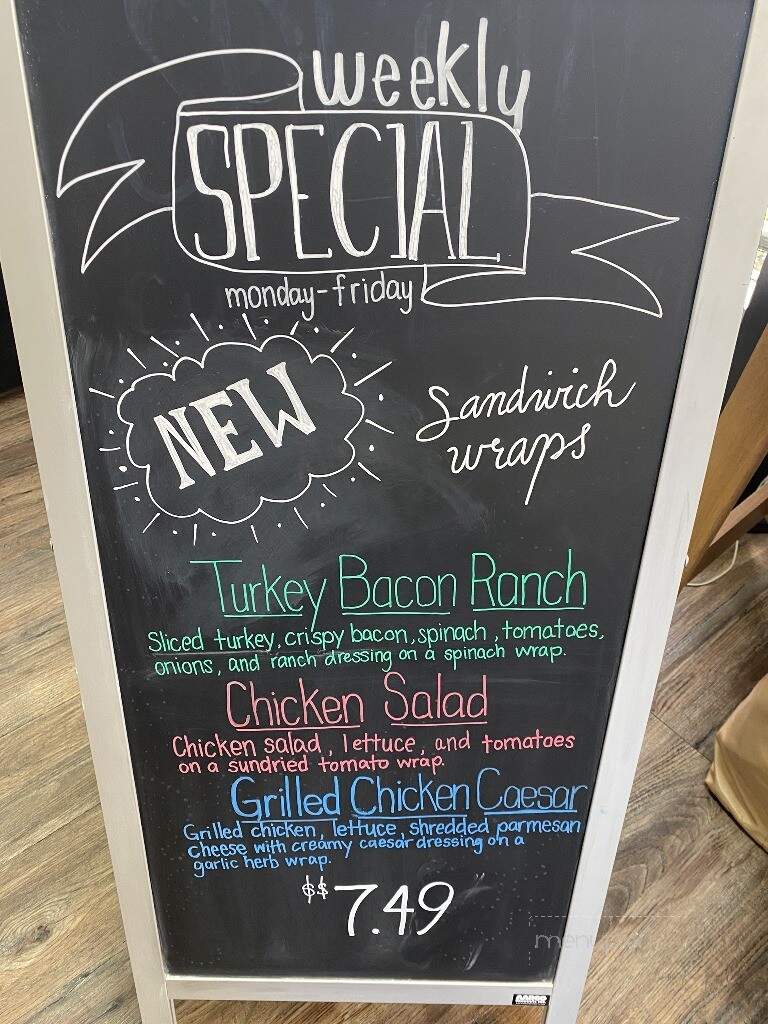 weekly
SPECIAL
monday-friday
NEW
Sandwich
wraps
Turkey Bacon Ranch
Sliced turkey, crispy bacon, spinach, tomatoes,
onions, and ranch dressing on a spinach wrap.
Chicken Salad
Chicken salad, lettuce, and tomatoes
on a sundried tomato wrap.
Grilled Chicken Caesar
Grilled chicken, lettuce, shredded parmesan
cheese with creamy caesar dressing on a
garlic herb wrap.
$$7.49
AARCO